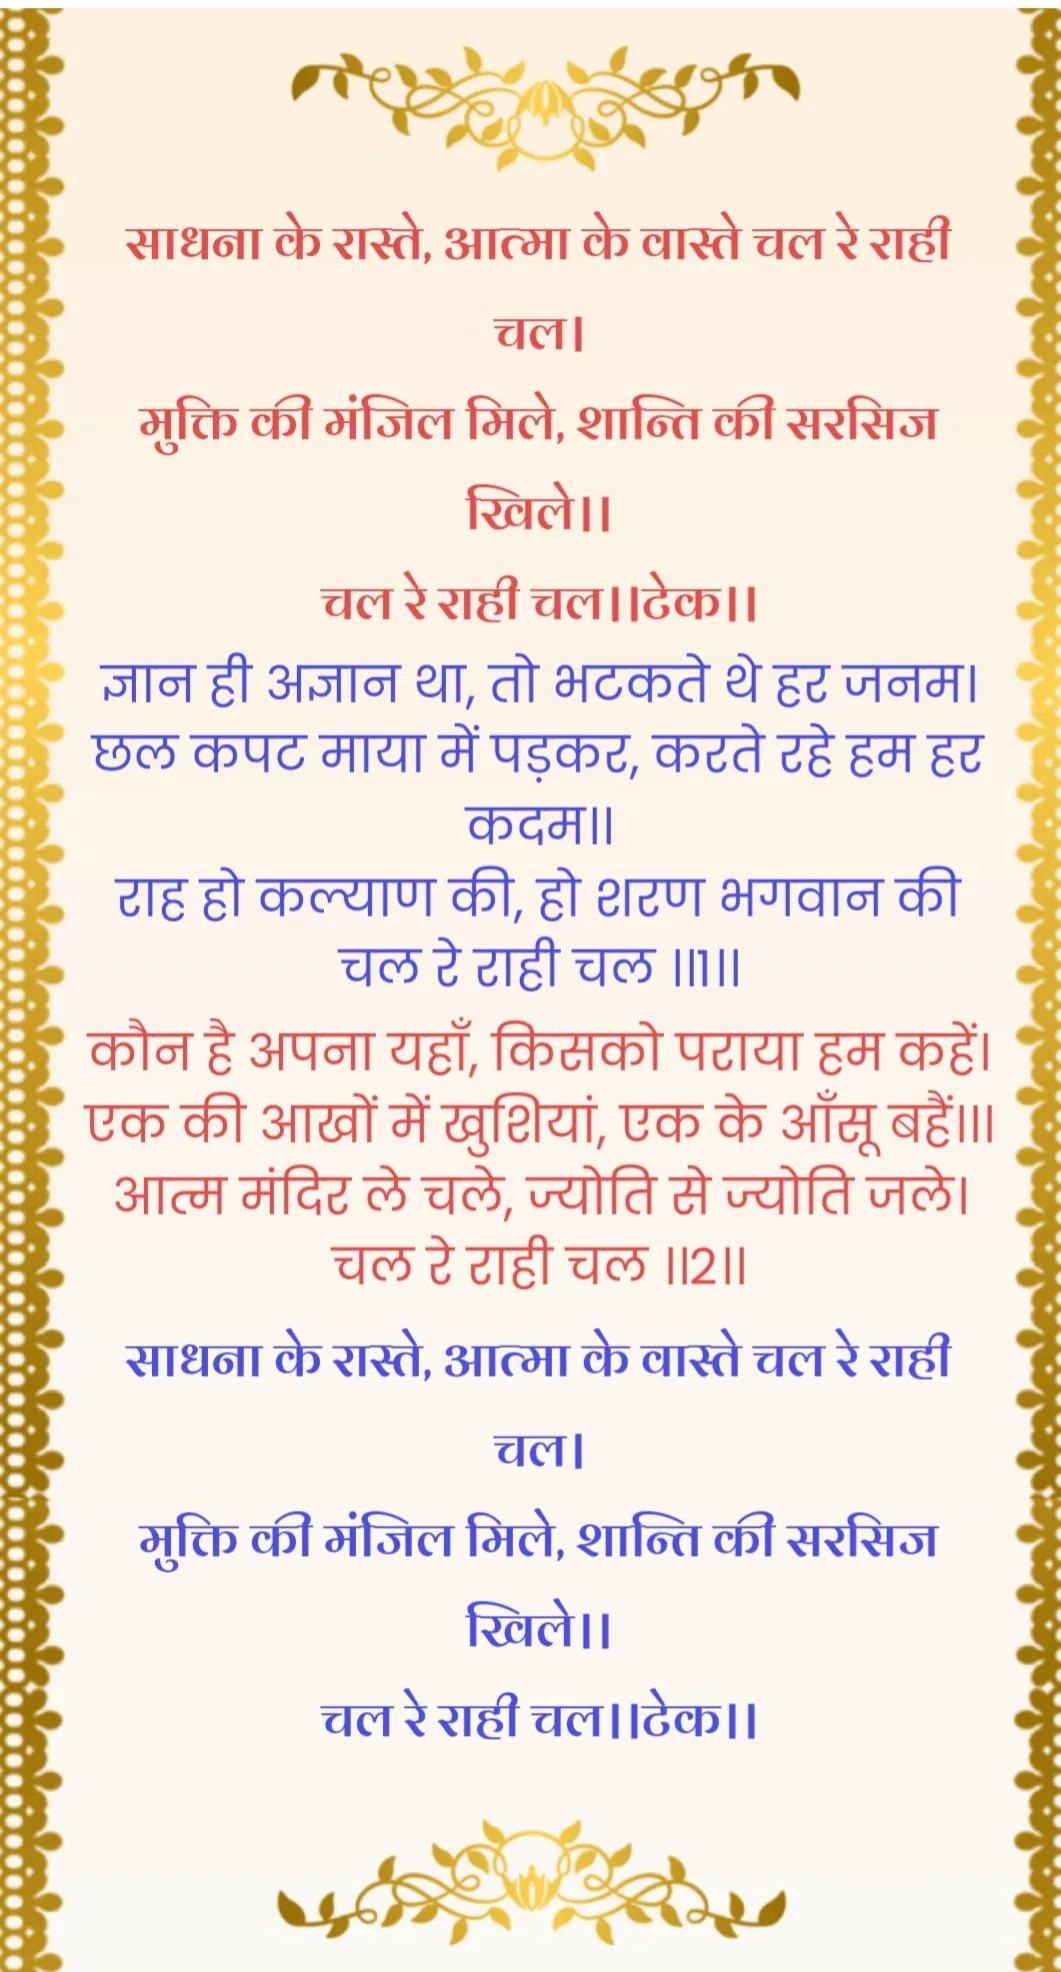 साधना के रास्ते, आत्मा के वास्ते चल रे राही
चल।
मुक्ति की मंजिल मिले, शान्ति की सरसिज
खिले।।
चल रे राही चल।।टेक।।
ज्ञान ही अज्ञान था, तो भटकते थे हर जनम।
छल कपट माया में पड़कर, करते रहे हम हर
कदम॥
राह हो कल्याण की, हो शरण भगवान की
चल रे राही चल ॥1॥
कौन है अपना यहाँ, किसको पराया हम कहें।
एक की आखों में खुशियां, एक के आँसू बहैं॥।
आत्म मंदिर ले चले, ज्योति से ज्योति जले।
चल रे राही चल ॥2॥
साधना के रास्ते, आत्मा के वास्ते चल रे राही
चल।
मुक्ति की मंजिल मिले, शान्ति की सरसिज
खिले।।
चल रे राही चल।।टेक।।